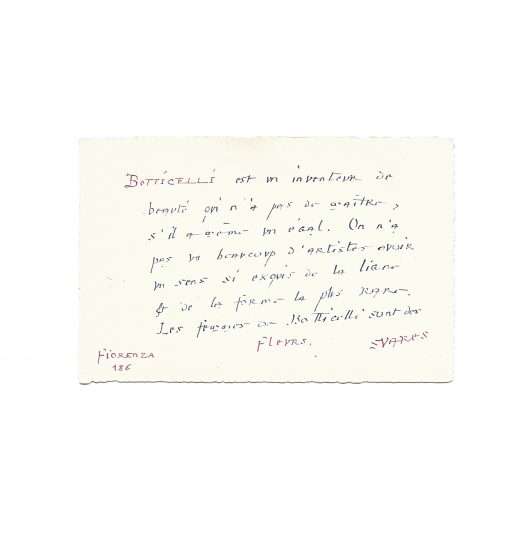 BOTTICELLI est un inventeur de
beauté qui n'a pas de maître,
s'il a même un égal. On n'a
pas vu beaucoup d'artistes avoir
un sens si exquis de la ligne
& de la forme la plus rare.
Les femmes de Botticelli sont des
fleurs.
SUARES
FIORENZA
186